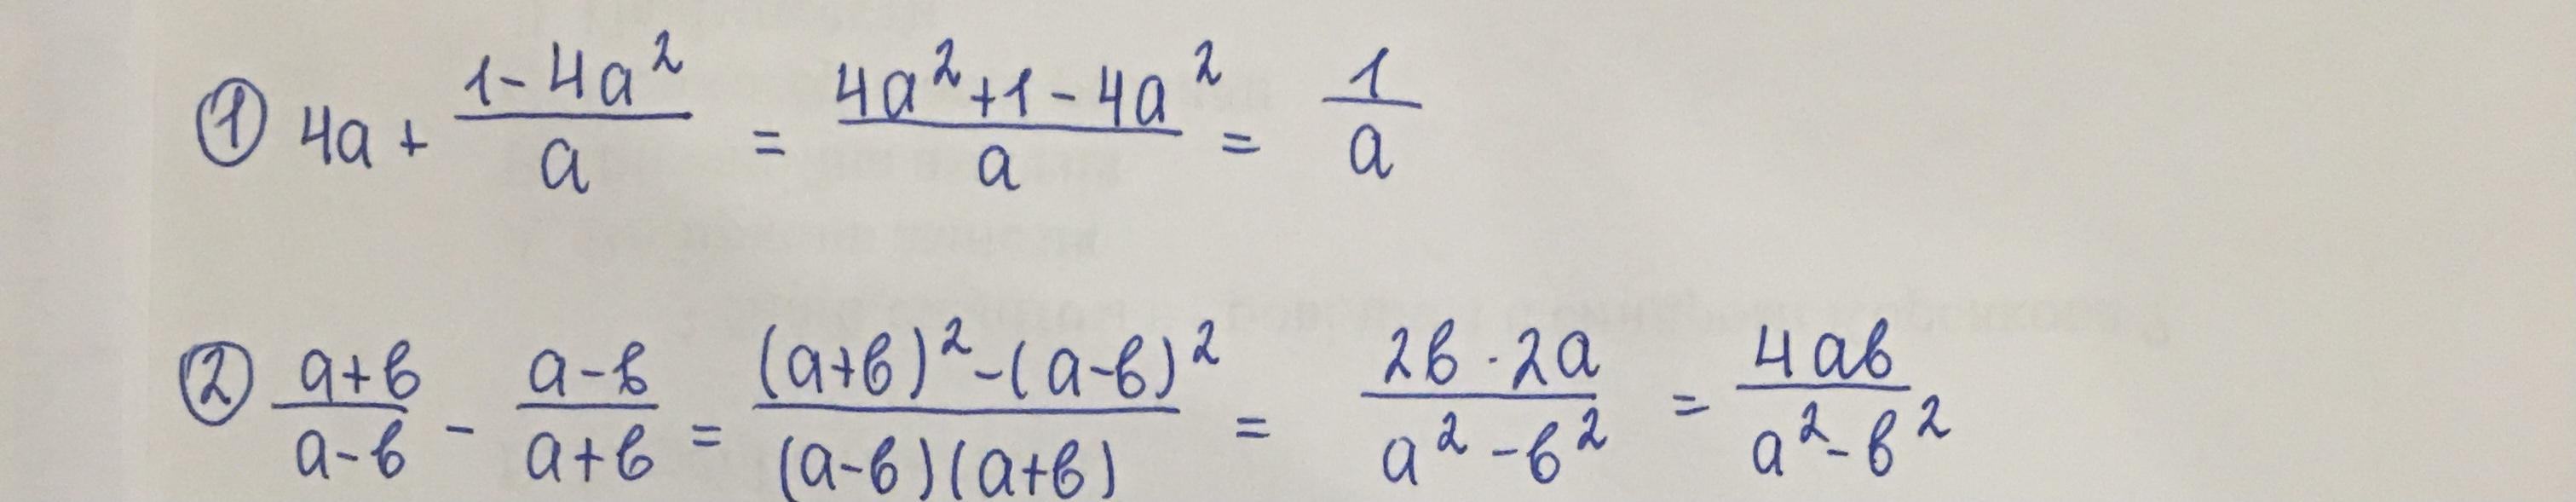 ① 4a + \frac{1-4a^2}{a} = \frac{4a^2+1-4a^2}{a} = \frac{1}{a}
② \frac{a+в}{a-в} - \frac{a-в}{a+в} = \frac{(a+в)^2-(a-в)^2}{(a-в)(a+в)} = \frac{2в·2a}{a^2-в^2} = \frac{4aв}{a^2-в^2}